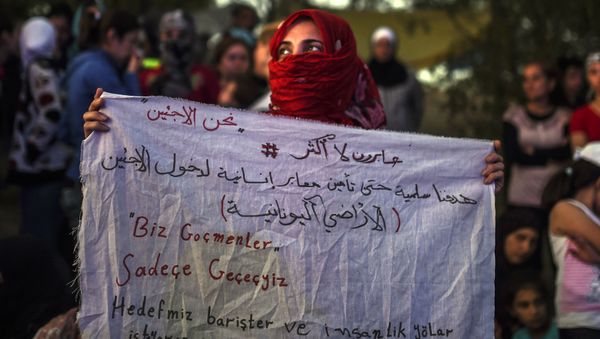 "نحن الاجئين"
# عابرون لا أكثر
هدفنا سلمية حتى تأمين معابر إنسانية لدخول الاجئين
(الأراضي اليونانية)
"Biz Goçmenler"
Sadeçe Geçeçyiz
Hedefmiz barişter ve insanlik yolar